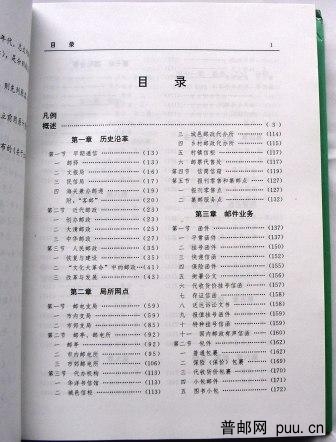 目 录
1
目 录
凡例
概述 ( 3 )
第一章 历史沿革
第一节 早期通信 (13)
一 邮驿 (13)
二 文报局 (13)
三 民信局 (17)
四 海关兼办邮递 (19)
附:“客邮” (20)
第二节 近代邮政 (23)
一 创办邮政 (23)
二 大清邮政 (23)
三 中华邮政 (25)
第三节 人民邮政 (33)
一 恢复与建设 (33)
二 “文化大革命”中的邮政
三 改革与发展
第二章 局所网点
第一节 邮电支局 (59)
一 市内支局 (59)
二 市郊支局 (85)
第二节 邮亭、邮电所 (92)
一 邮亭 (92)
二 市内邮电所 (92)
三 市郊邮电所 (112)
第三节 代办机构 (113)
一 华洋书信馆 (113)
二 城邑信柜 (113)
三 城邑邮政代办所 (114)
四 乡村邮政代办所 (114)
五 村镇信柜 (115)
六 邮票代售处 (115)
第四节 信筒信箱 (116)
第五节 报刊零售和集邮点 (121)
一 报刊零售点 (121)
二 集邮服务点
第三章 邮件业务
第一节 函件 (137)
一 平常函件 (137)
二 挂号函件 (150)
三 快递信函 (155)
四 保险函件
五 商业公文
六 代收货价挂号信函
七 存证信函
八 送达诉讼文书
九 报值挂号函件
十 特种挂号信函
十一 国内邮政有声信函 (160)
第二节 包件 (162)
一 普通包裹 (162)
二 保险(保价)包裹
三 代收货价包裹
四 小包邮件
五 图书小包 (172)
普邮网 puu.cn